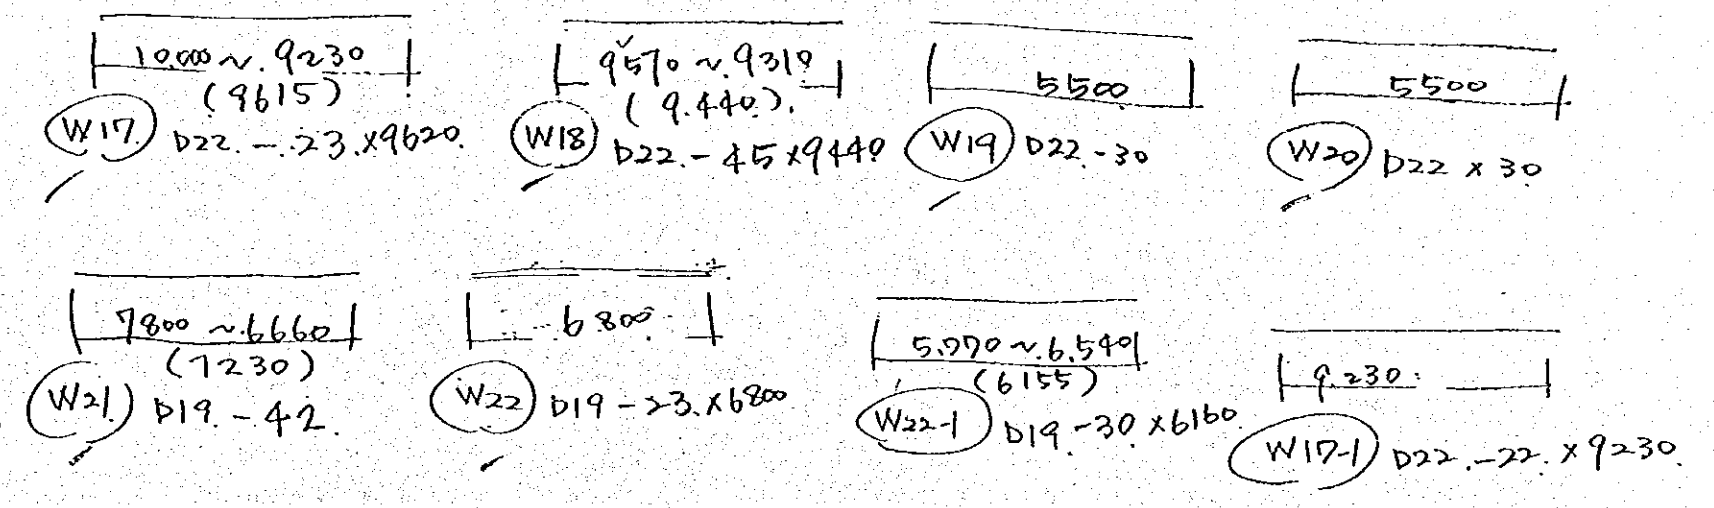 10.000 ~ 9230
(9615)
W17 D22. - 23. x9620.
9570 ~ 9310
(9.440).
W18 D22. - 45 x9440
5500
W19 D22 - 30
5500
W20 D22 x 30
7800 ~ 6660
(7230)
W21. D19. - 42.
6800
W22 D19 - 23. x6800
5.770 ~ 6.540
(6155)
W22-1 D19. - 30 x6160.
9.230.
W17-1 D22. - 22. x 9230.